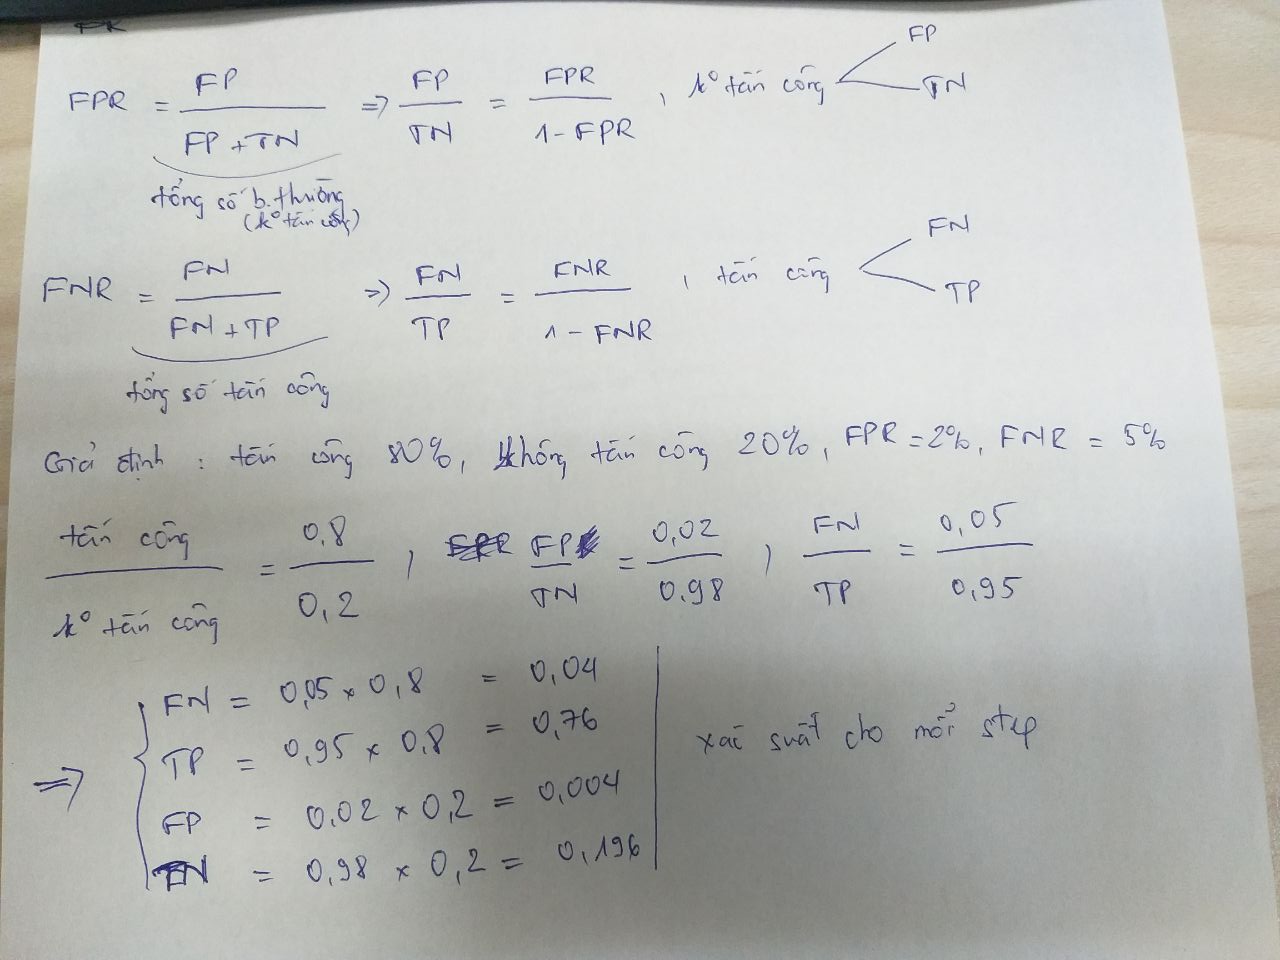 FPR = FP / (FP + TN) => FP / TN = FPR / (1 - FPR) , k° tấn công < FP TN
tổng số b. thường
(k° tấn công)
FNR = FN / (FN + TP) => FN / TP = FNR / (1 - FNR) , tấn công < FN TP
tổng số tấn công
Giả định : tấn công 80%, không tấn công 20%, FPR = 2%, FNR = 5%
tấn công / k° tấn công = 0,8 / 0,2 , FP / TN = 0,02 / 0,98 , FN / TP = 0,05 / 0,95
=> { FN = 0,05 x 0,8 = 0,04
TP = 0,95 x 0,8 = 0,76
xác suất cho mỗi step
FP = 0,02 x 0,2 = 0,004
TN = 0,98 x 0,2 = 0,196